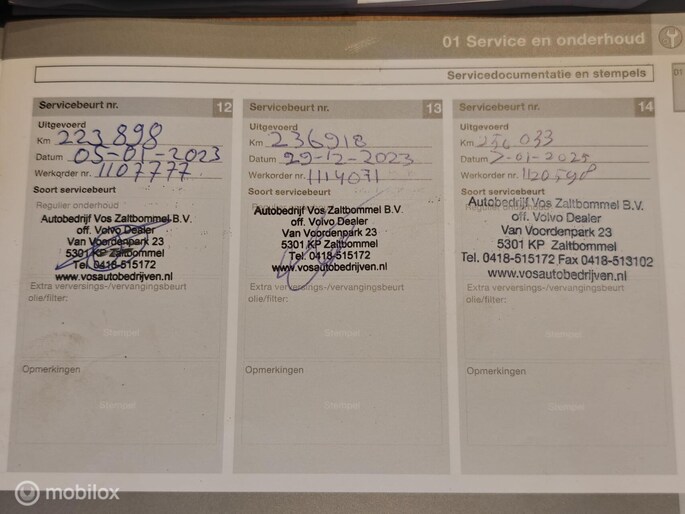 01 Service en onderhoud
Servicedocumentatie en stempels
01
Servicebeurt nr. 12
Uitgevoerd
Km 223898
Datum 05-01-2023
Werkorder nr. 1107777
Soort servicebeurt
Regulier onderhoud
Autobedrijf Vos Zaltbommel B.V.
off. Volvo Dealer
Van Voordenpark 23
5301 KP Zaltbommel
Tel. 0418-515172
www.vosautobedrijven.nl
Extra verversings-/vervangingsbeurt
olie/filter:
Stempel
Opmerkingen
Stempel
Servicebeurt nr. 13
Uitgevoerd
Km 236918
Datum 29-12-2023
Werkorder nr. 1114071
Soort servicebeurt
Regulier onderhoud
Autobedrijf Vos Zaltbommel B.V.
off. Volvo Dealer
Van Voordenpark 23
5301 KP Zaltbommel
Tel. 0418-515172
www.vosautobedrijven.nl
Extra verversings-/vervangingsbeurt
olie/filter:
Stempel
Opmerkingen
Stempel
Servicebeurt nr. 14
Uitgevoerd
Km 033
Datum 7-01-2025
Werkorder nr.
Soort servicebeurt
Regulier onderhoud
Autobedrijf Vos Zaltbommel B.V.
off. Volvo Dealer
Van Voordenpark 23
5301 KP Zaltbommel
Tel. 0418-515172 Fax 0418-513102
www.vosautobedrijven.nl
Extra verversings-/vervangingsbeurt
olie/filter:
Stempel
Opmerkingen
Stempel
mobilox